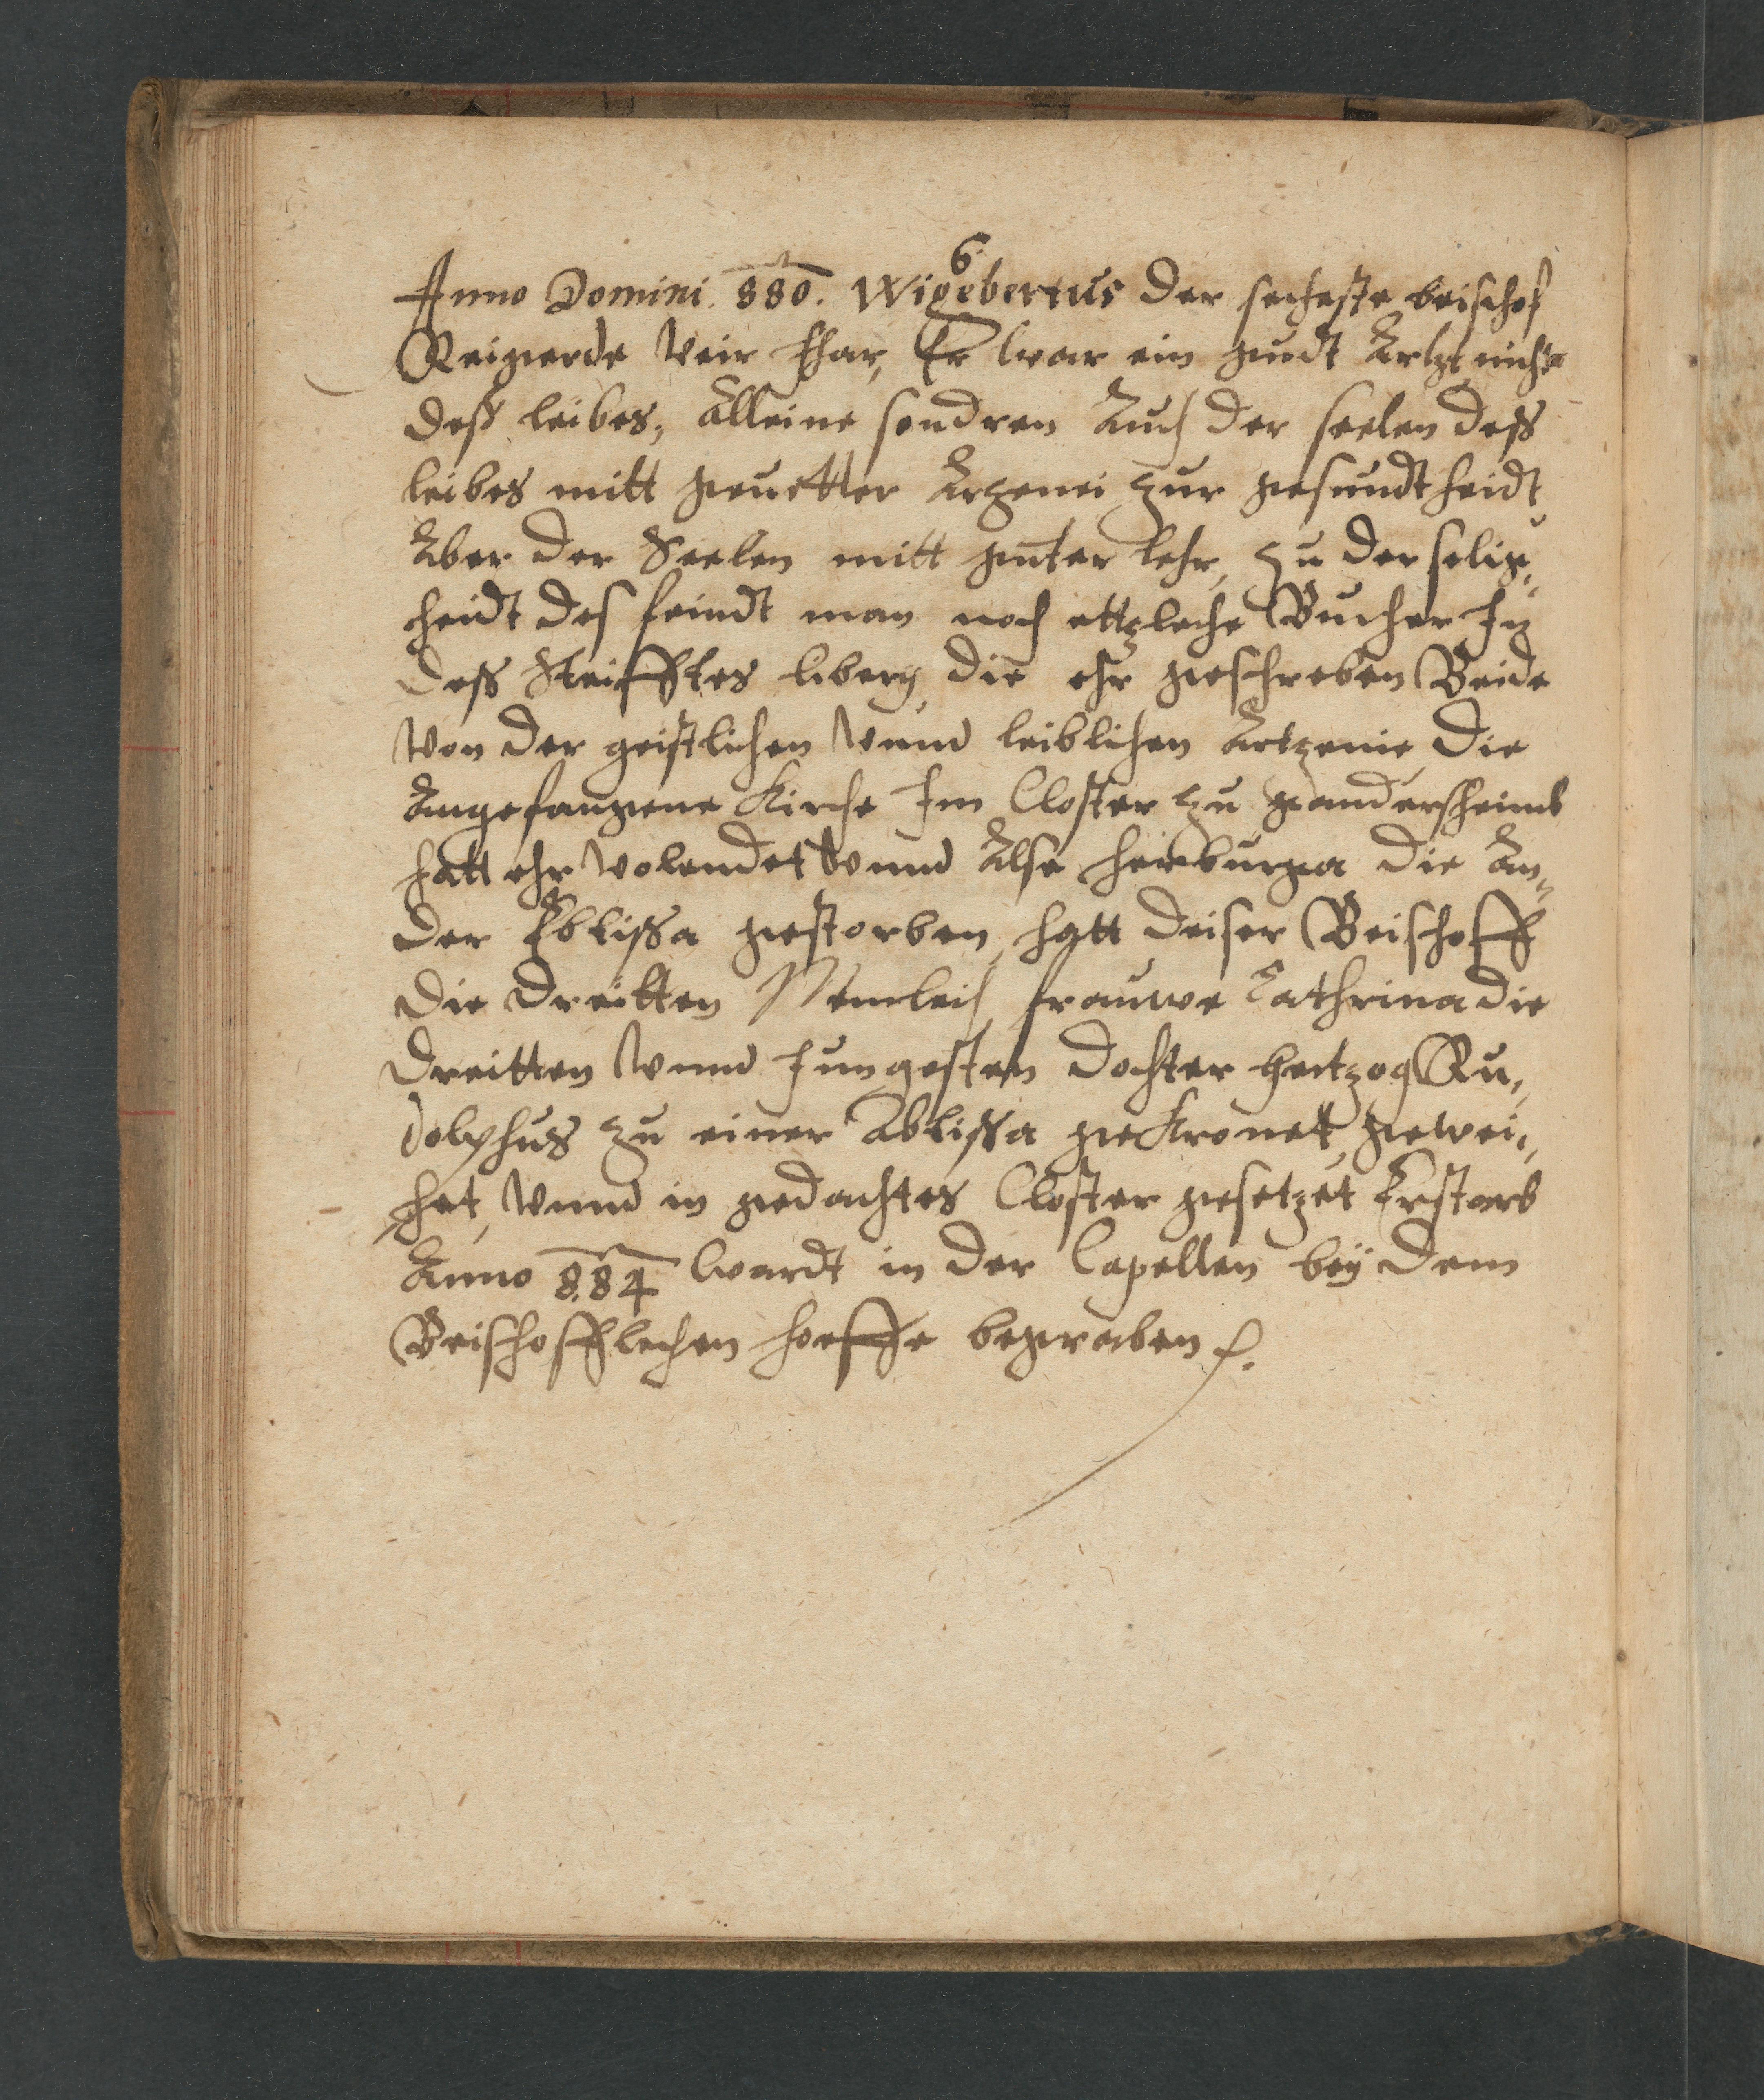 6.
Anno Domini 880. Wigebertus der secheste beischof
Reigierde veir Ihar, Er war ein gudt Artzt nicht
deß leibes, Alleine sondren Auch der seelen deß
leibes mitt geuetter Arzenei zur gesundtheidt
Aber der Seelen mitt guter lehr, zu der selig„
cheidt des feindt man noch ettzleche Bucher In
deß Steifftes libery, die ehr geschreben Beide
Von der geistlichen Vnnd leiblichen Artzenie die
Angefangene Kirche Im Closter zu gandersheimb
hatt ehr volendet Vnnd Alse herburga die An„
der Ebtissa gestorben, hatt deiser Beischoff
die dreitten Nemleich frauwe Cathrina die
dreitten Vnnd Jungesten dochter hertzog Ru„
dolphus zu einer Abtissa gekronett, gewei„
het, Vnnd in gedachtes Closter gesetzet Erstarb
Anno 884 wardt in der Capellen bey dem
Beischofflechen hoeffe begraben